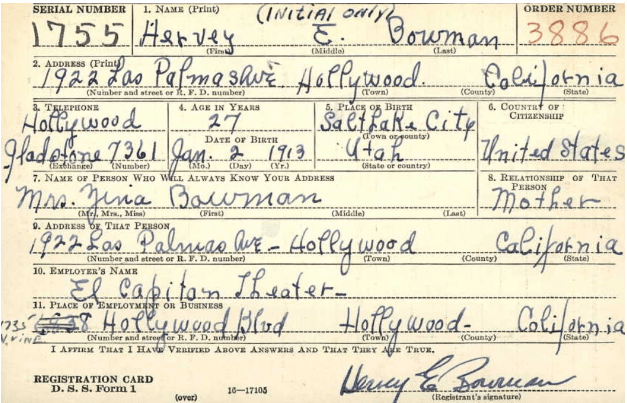 SERIAL NUMBER 1. NAME (Print) (INITIAL ONLY) ORDER NUMBER
1755 Hervey E. Bowman 3886
(First) (Middle) (Last)
2. ADDRESS (Print)
1922 Las Palmas Ave. Hollywood. California
(Number and street or R. F. D. number) (Town) (County) (State)
3. TELEPHONE 4. AGE IN YEARS 5. PLACE OF BIRTH 6. COUNTRY OF CITIZENSHIP
Hollywood 27 Salt Lake City
DATE OF BIRTH (Town or county)
Gladstone 7361 Jan. 2 1913 Utah United States
(Exchange) (Number) (Mo.) (Day) (Yr.) (State or country)
7. NAME OF PERSON WHO WILL ALWAYS KNOW YOUR ADDRESS 8. RELATIONSHIP OF THAT PERSON
Mrs. Zina Bowman Mother
(Mr., Mrs., Miss) (First) (Middle) (Last)
9. ADDRESS OF THAT PERSON
1922 Las Palmas Ave - Hollywood California
(Number and street or R. F. D. number) (Town) (County) (State)
10. EMPLOYER'S NAME
El Capitan Theater-
11. PLACE OF EMPLOYMENT OR BUSINESS
1735 Hollywood Blvd Hollywood- California
N. VINE (Number and street or R. F. D. number) (Town) (County) (State)
I AFFIRM THAT I HAVE VERIFIED ABOVE ANSWERS AND THAT THEY ARE TRUE.
REGISTRATION CARD
D. S. S. Form 1 Hervey E Bowman
(over) 16-17105 (Registrant's signature)